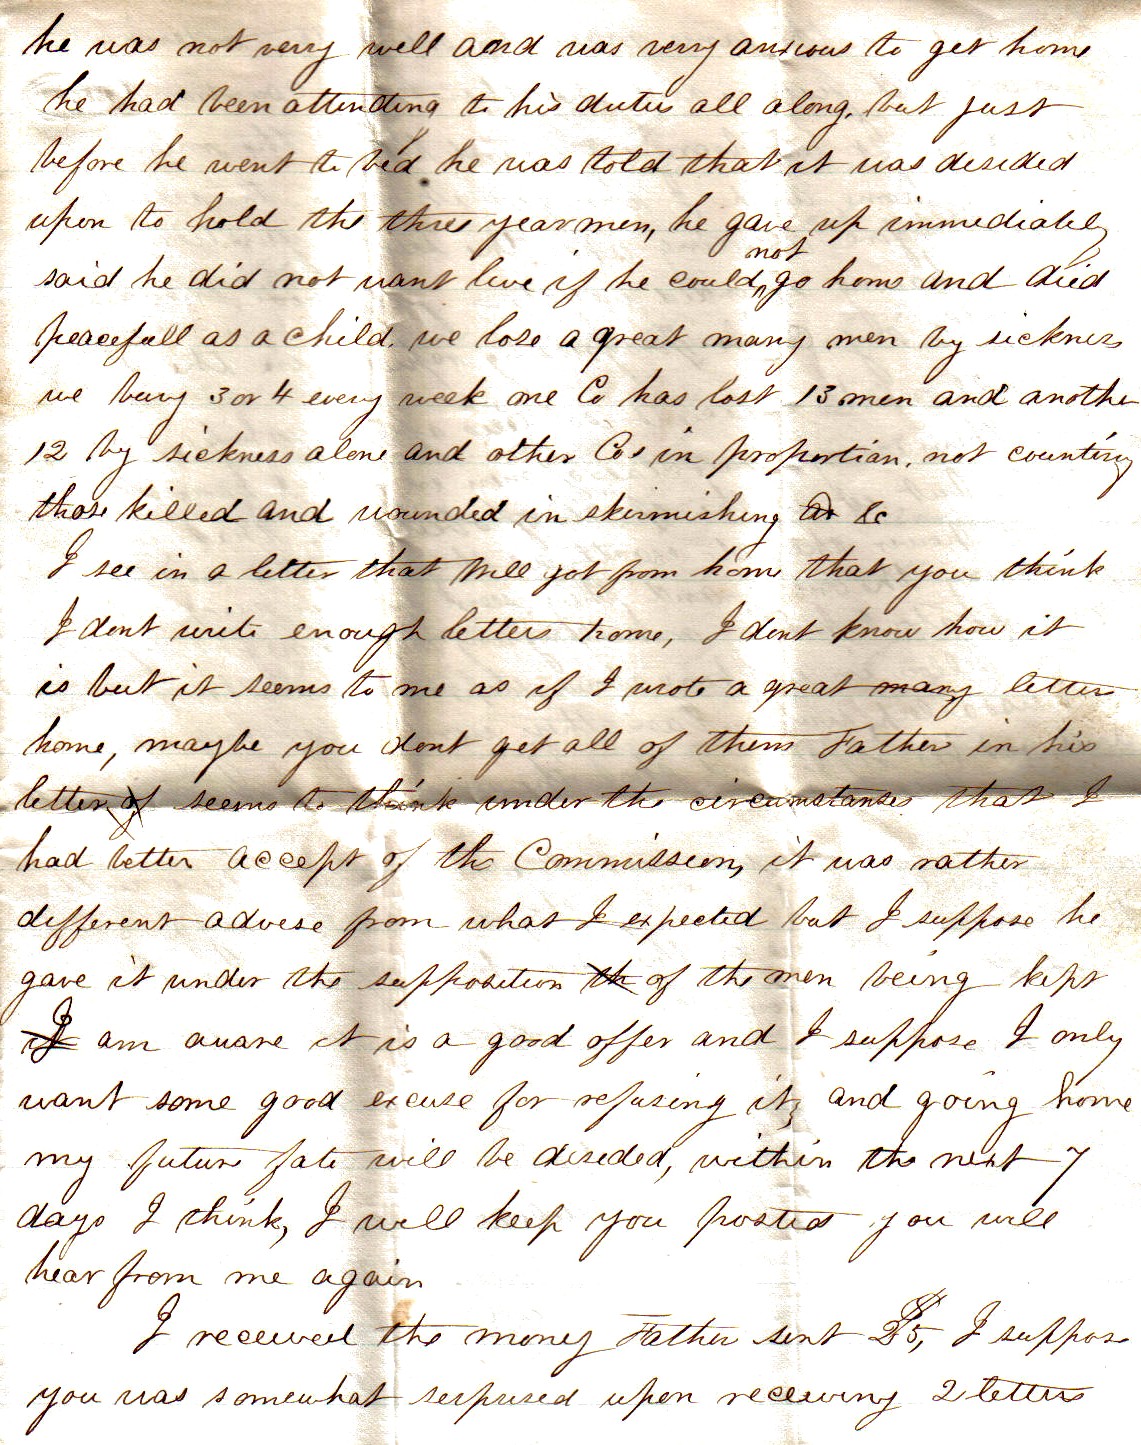 he was not verry well and was verry anxious to get home
he had been attending to his duties all along, but just
before he went to bed he was told that it was desided
upon to hold the three year men, he gave up immediately
said he did not want live if he could not go home and died
peacefull as a child. we lose a great many men by sickness
we bury 3 or 4 every week one Co has lost 13 men and another
12 by sickness alone and other Cos in proportion, not counting
those killed and wounded in skirmishing &c
I see in a letter that Will got from home that you think
I dont write enough letters home, I dont know how it
is but it seems to me as if I wrote a great many letters
home, maybe you dont get all of them Father in his
letter seems to think under the circumstances that I
had better accept of the Commission, it was rather
different advise from what I expected but I suppose he
gave it under the supposition th of the men being kept
I am aware it is a good offer and I suppose I only
want some good excuse for refusing it, and going home
my future fate will be deseded, within the next 7
days I think, I will keep you posted you will
hear from me again
I received the money Father sent $5, I suppose
you was somewhat serprised upon receiving 2 letters